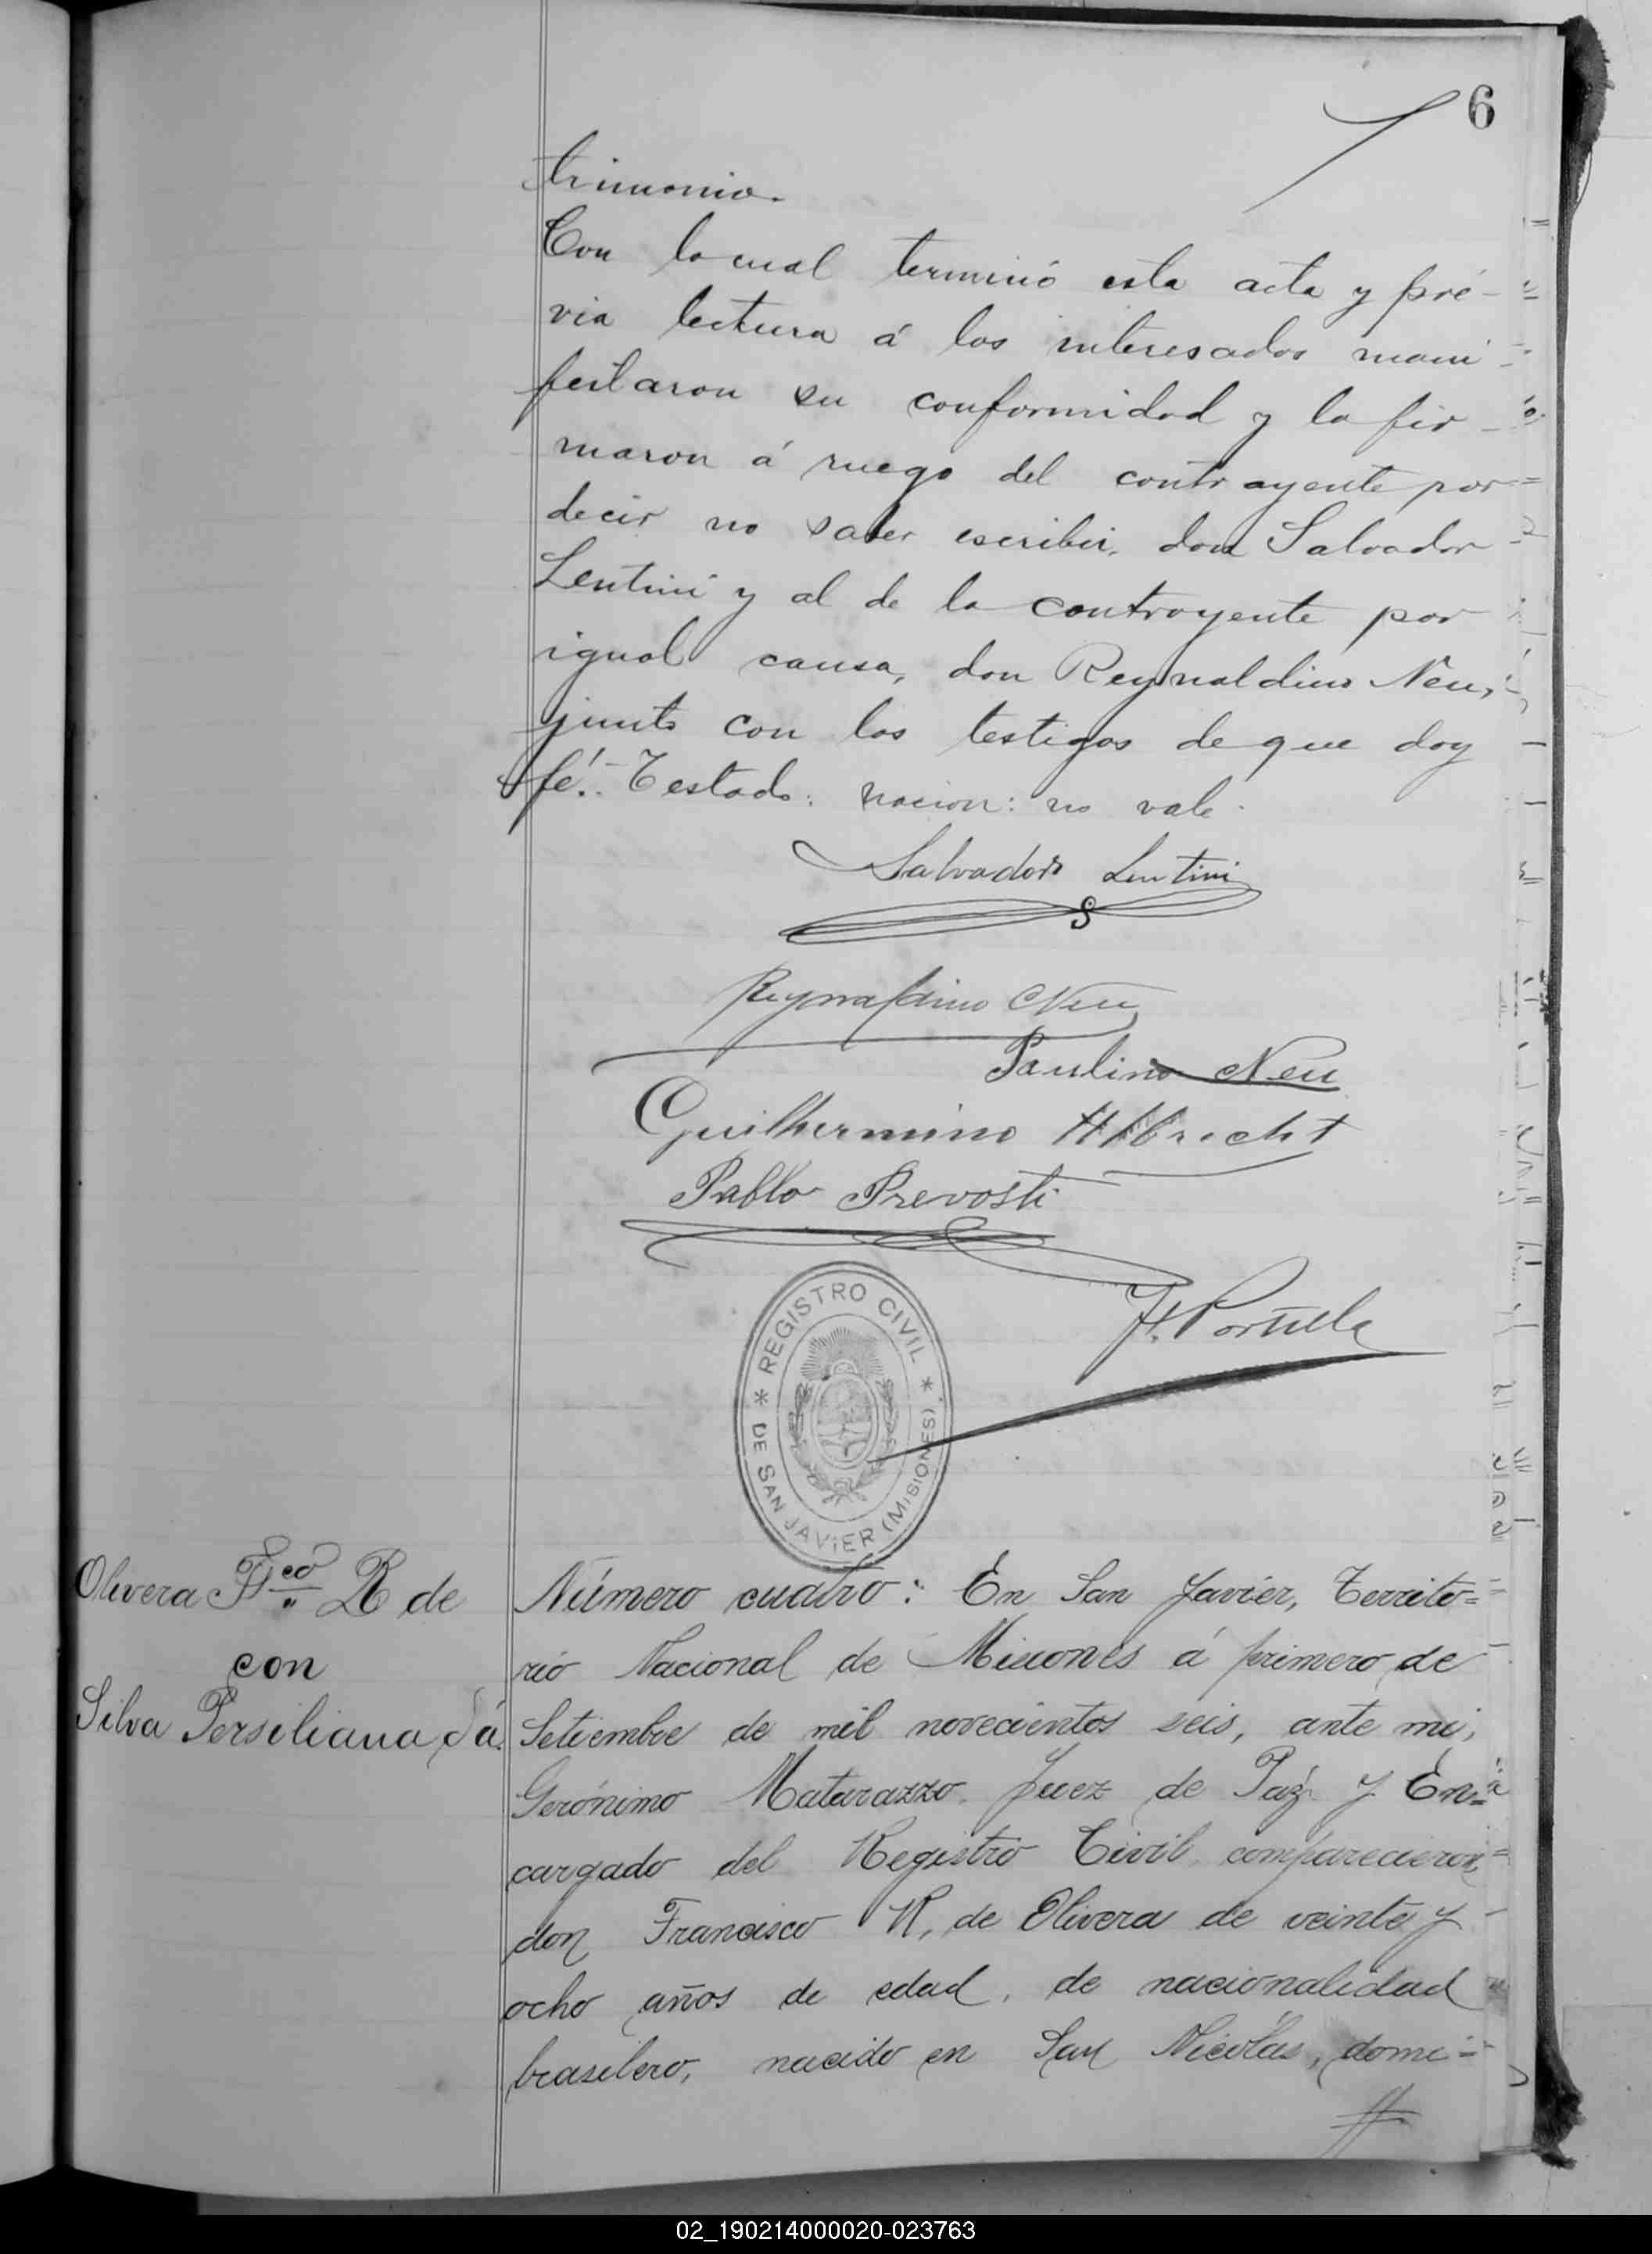 6
trimonio.
Con lo cual terminó esta acta y pré-
via lectura á los interesados mani-
festaron su conformidad y la fir-
maron á ruego del contrayente por
decir no saber escribir, don Salvador
Lentini y al de la contrayente por
igual causa, don Reynaldino Neu,
junto con los testigos de que doy
fé.- Testado: nacion: no vale.
Salvador Lentini
Reynaldino Neu
Paulino Neu
Guilhermino Albrecht
Pablo Prevosti
REGISTRO CIVIL
* DE SAN JAVIER (MISIONES) *
Olivera Fco R de
con
Silva Persiliana da
Número cuatro: En San Javier, Territo=
rio Nacional de Misiones á primero de
Setiembre de mil novecientos seis, ante mi,
Gerónimo Matarazzo, Juez de Paz y En=
cargado del Registro Civil comparecieron,
don Francisco R. de Olivera de veinte y
ocho años de edad, de nacionalidad
brasilero, nacido en San Nicolás, domi=
02_190214000020-023763